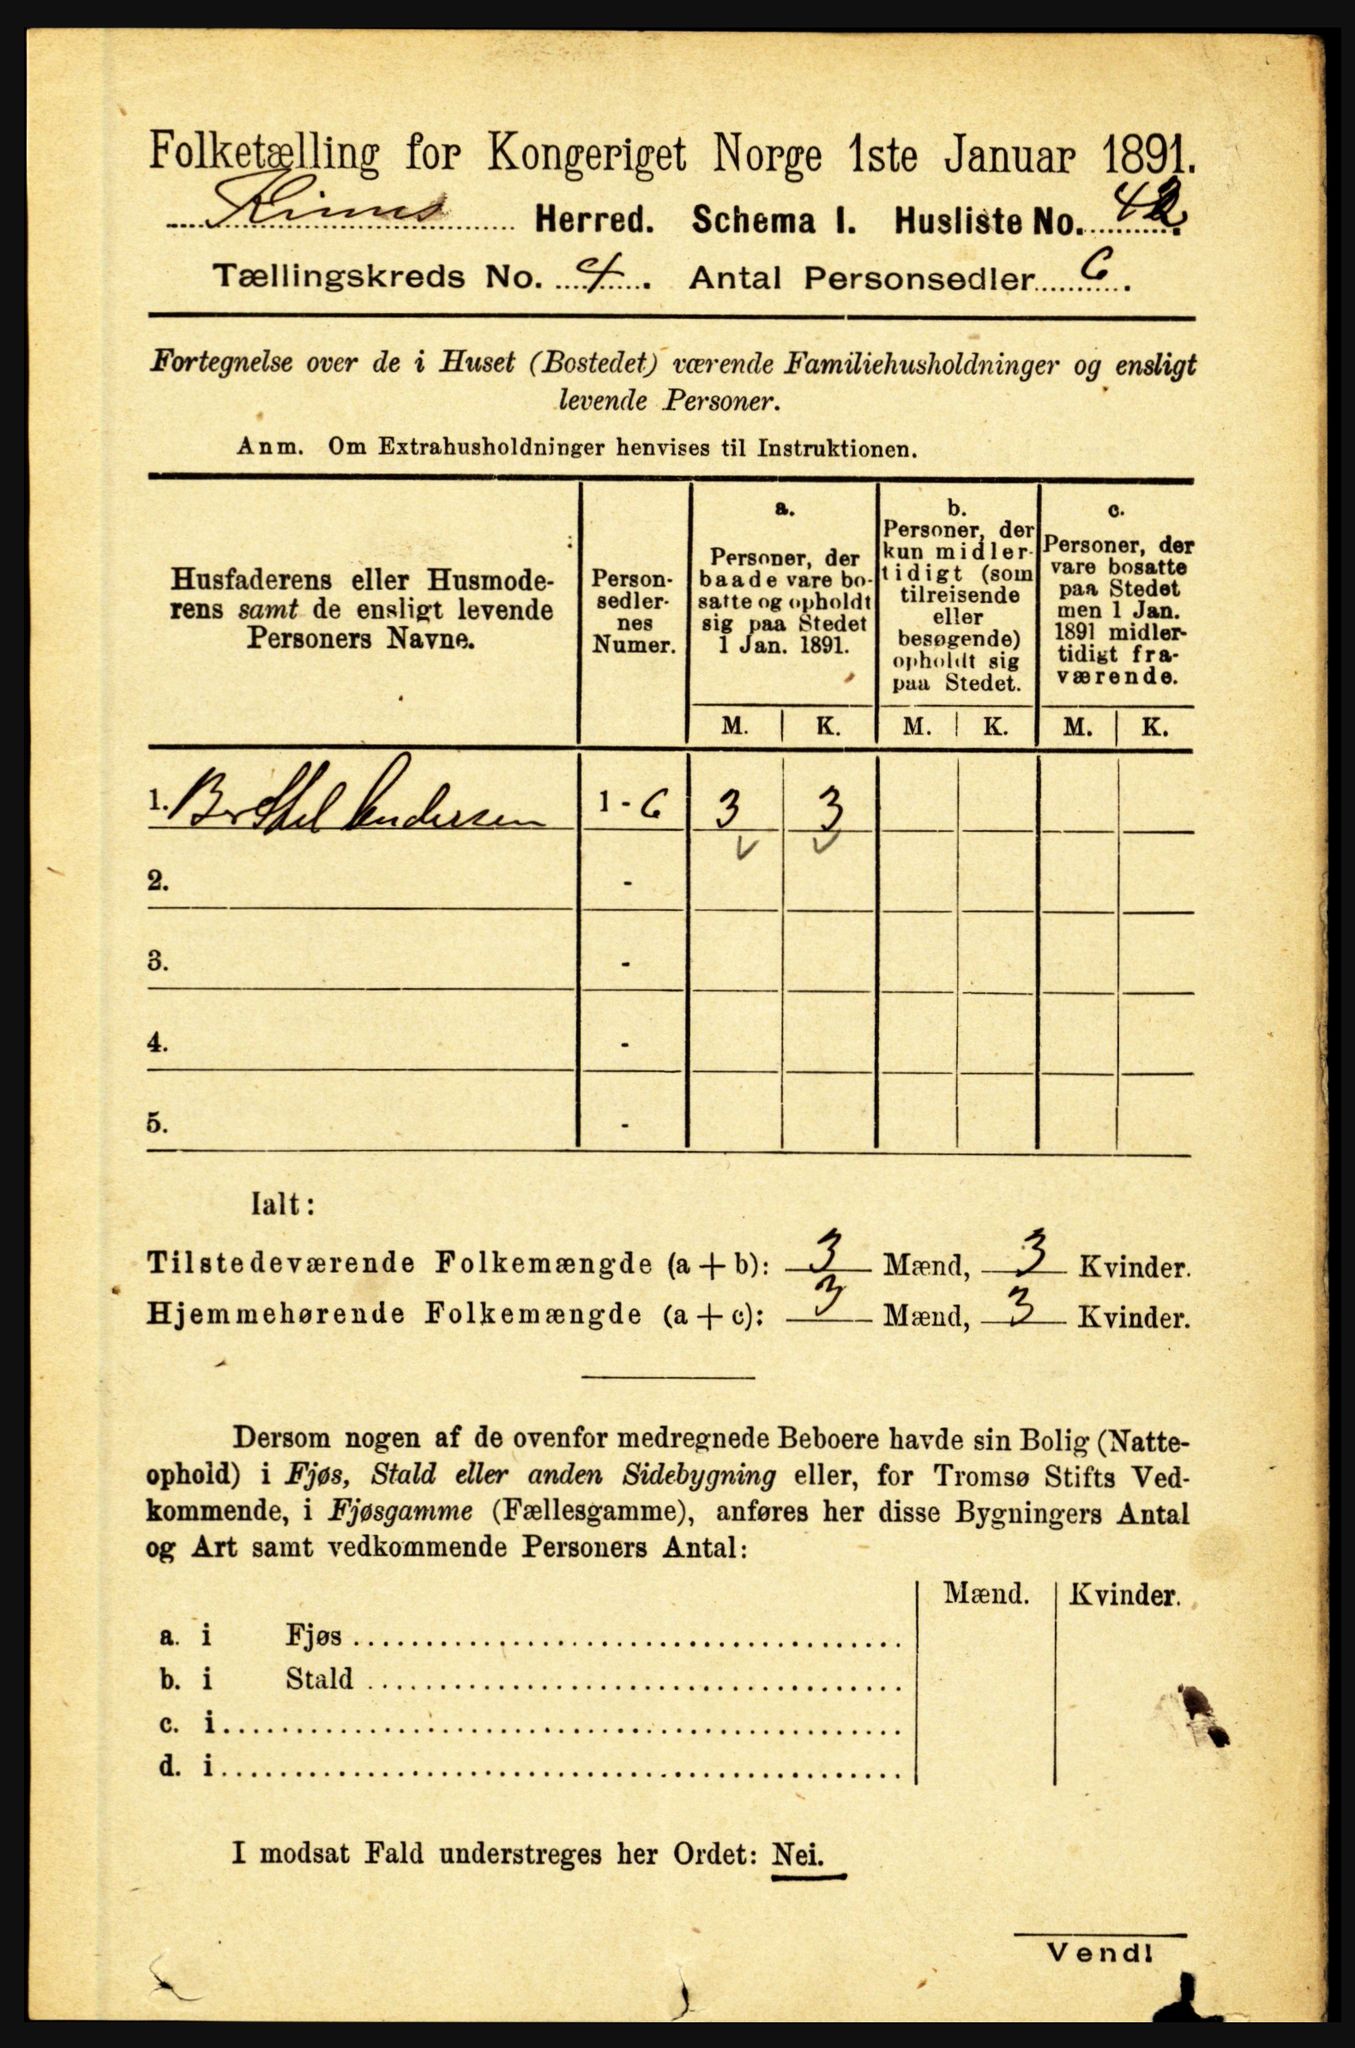 Folketælling for Kongeriget Norge 1ste Januar 1891.
Kinns Herred. Schema I. Husliste No. 42.
Tællingskreds No. 4. Antal Personsedler 6.
Fortegnelse over de i Huset (Bostedet) værende Familiehusholdninger og ensligt
levende Personer.
Anm. Om Extrahusholdninger henvises til Instruktionen.
Husfaderens eller Husmode-
rens samt de ensligt levende
Personers Navne.
Person-
sedler-
nes
Numer.
a.
Personer, der
baade vare bo-
satte og opholdt
sig paa Stedet
1 Jan. 1891.
b.
Personer, der
kun midler-
tidigt (som
tilreisende
eller
besøgende)
opholdt sig
paa Stedet.
c.
Personer, der
vare bosatte
paa Stedet
men 1 Jan.
1891 midler-
tidigt fra-
værende.
M. K. M. K. M. K.
1. Berthel Andersen 1 - 6 3 3
2. -
3. -
4. -
5. -
Ialt:
Tilstedeværende Folkemængde (a + b): 3 Mænd, 3 Kvinder.
Hjemmehørende Folkemængde (a + c): 3 Mænd, 3 Kvinder.
Dersom nogen af de ovenfor medregnede Beboere havde sin Bolig (Natte-
ophold) i Fjøs, Stald eller anden Sidebygning eller, for Tromsø Stifts Ved-
kommende, i Fjøsgamme (Fællesgamme), anføres her disse Bygningers Antal
og Art samt vedkommende Personers Antal:
Mænd. Kvinder.
a. i Fjøs
b. i Stald
c. i
d. i
I modsat Fald understreges her Ordet: Nei.
Vend!